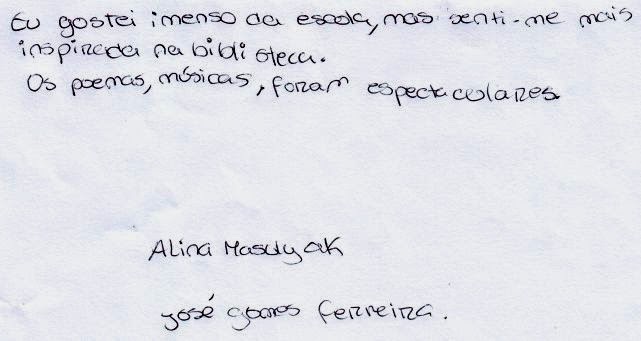 Eu gostei imenso da escola, mas senti-me mais
inspirada na biblioteca.
Os poemas, músicas, foram espectaculares.
Alina Masulyak
José gomes Ferreira.